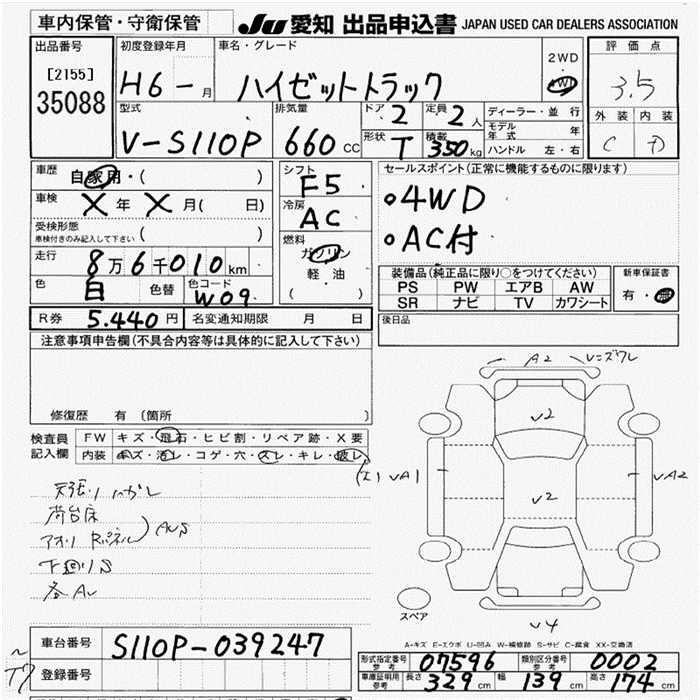 車内保管・守衛保管
JU 愛知 出品申込書 JAPAN USED CAR DEALERS ASSOCIATION
出品番号
[2155]
35088
初度登録年月
H6 - 月
車名・グレード
ハイゼットトラック
2WD
4WD
評価点
3.5
外装 内装
C D
型式
V-S110P
排気量
660 cc
ドア 2
定員 2 人
形状 T
積載 350 kg
ディーラー・並行
モデル年式 年
ハンドル 左・右
車歴
自家用・( )
車検 X 年 X 月( 日)
受検形態
車検付きのみ記入して下さい ( )
走行 8万6千010km
色 白 色替 色コード W09
シフト
F5
冷房
AC
燃料
ガソリン
軽油
( )
セールスポイント(正常に機能するものに限ります)
・4WD
・AC付
装備品(純正品に限り○をつけてください)
PS PW エアB AW
SR ナビ TV カワシート
新車保証書
有・無
R券 5.440 円 名変通知期限 月 日
後日品
注意事項申告欄(不具合内容等は具体的に記入して下さい)
修復歴 有 (箇所 )
検査員記入欄
FW キズ・飛石・ヒビ割・リペア跡・X要
内装 キズ・汚レ・コゲ・穴・スレ・キレ・破レ
天張リハガレ
荷台床
下廻りS
各AU
A2
V=ズワレ
V2
VA1
V2
VA2
V4
スペア
A=キズ E=エクボ U=凹み W=補修跡 S=サビ C=腐食 XX=交換済
車台番号 S110P-039247
登録番号
形式指定番号参考 07596 類別区分番号参考 0002
車庫証明用参考 長さ 329 cm 幅 139 cm 高さ 174 cm